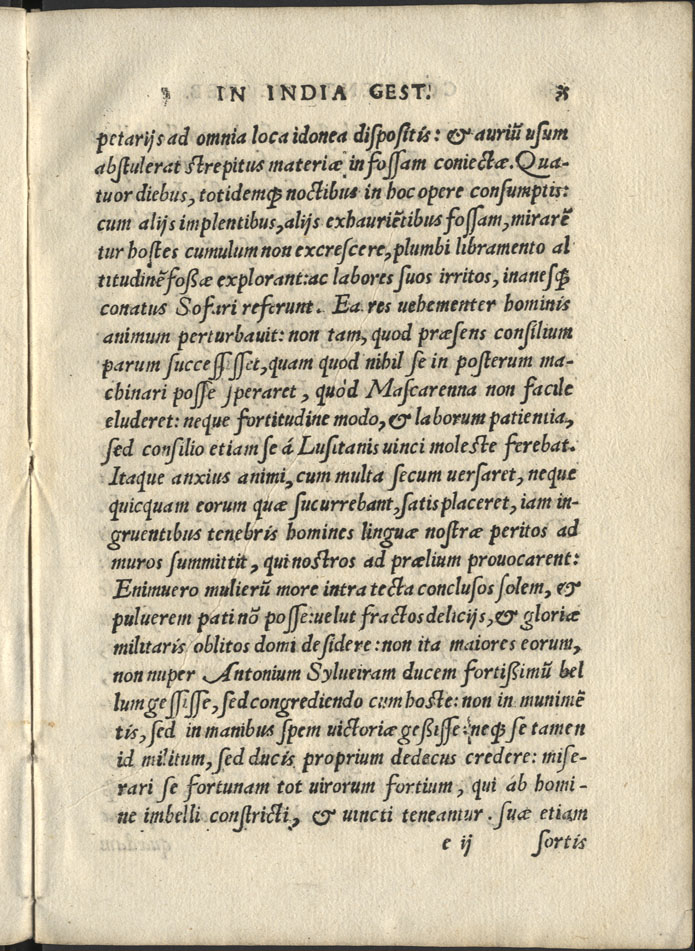 IN INDIA GEST.
petarijs ad omnia loca idonea dispositis: & auriũ usum
abstulerat strepitus materiæ in fossam coniectæ. Qua-
tuor diebus, totidemq́; noctibus in hoc opere consumptis:
cum alijs implentibus, alijs exhauriẽtibus fossam, mirarẽ
tur hostes cumulum non excrescere, plumbi libramento al
titudinẽ foßæ explorant: ac labores suos irritos, inanesq́;
conatus Sofari referunt. Ea res uehementer hominis
animum perturbauit: non tam, quod præsens consilium
parum successisset, quam quod nihil se in posterum ma-
chinari posse speraret, quòd Mascarenna non facile
eluderet: neque fortitudine modo, & laborum patientia,
sed consilio etiam se á Lusitanis uinci moleste ferebat.
Itaque anxius animi, cum multa secum uersaret, neque
quicquam eorum quæ sucurrebant, satis placeret, iam in-
gruentibus tenebris homines linguæ nostræ peritos ad
muros summittit, qui nostros ad prælium prouocarent:
Enimuero mulierũ more intra tecta conclusos solem, &
puluerem pati nõ posse: uelut fractos delicijs, & gloriæ
militaris oblitos domi desidere: non ita maiores eorum,
non nuper Antonium Sylueiram ducem fortißimũ bel
lum gessisse, sed congrediendo cum hoste: non in munimẽ
tis, sed in manibus spem uictoriæ geßisse: neq́; se tamen
id militum, sed ducis proprium dedecus credere: mise-
rari se fortunam tot uirorum fortium, qui ab homi-
ne imbelli constricti, & uincti teneantur. suæ etiam
e ij sortis